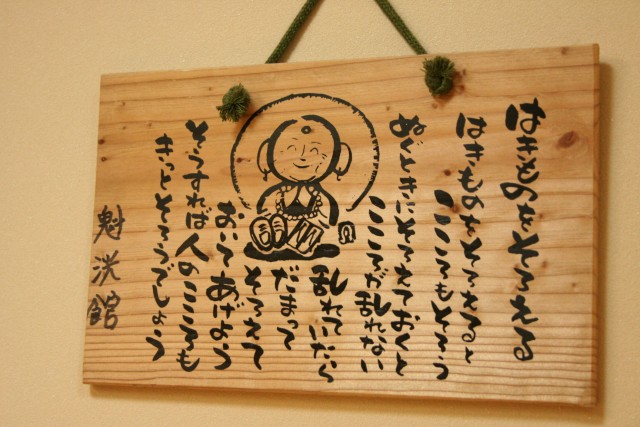 はきものをそろえる
はきものをそろえると
こころもそろう
ぬぐときにそろえておくと
こころが乱れない
乱れていたら
だまって
そろえて
おいてあげよう
そうすれば人のこころも
きっとそろうでしょう
魁洗館